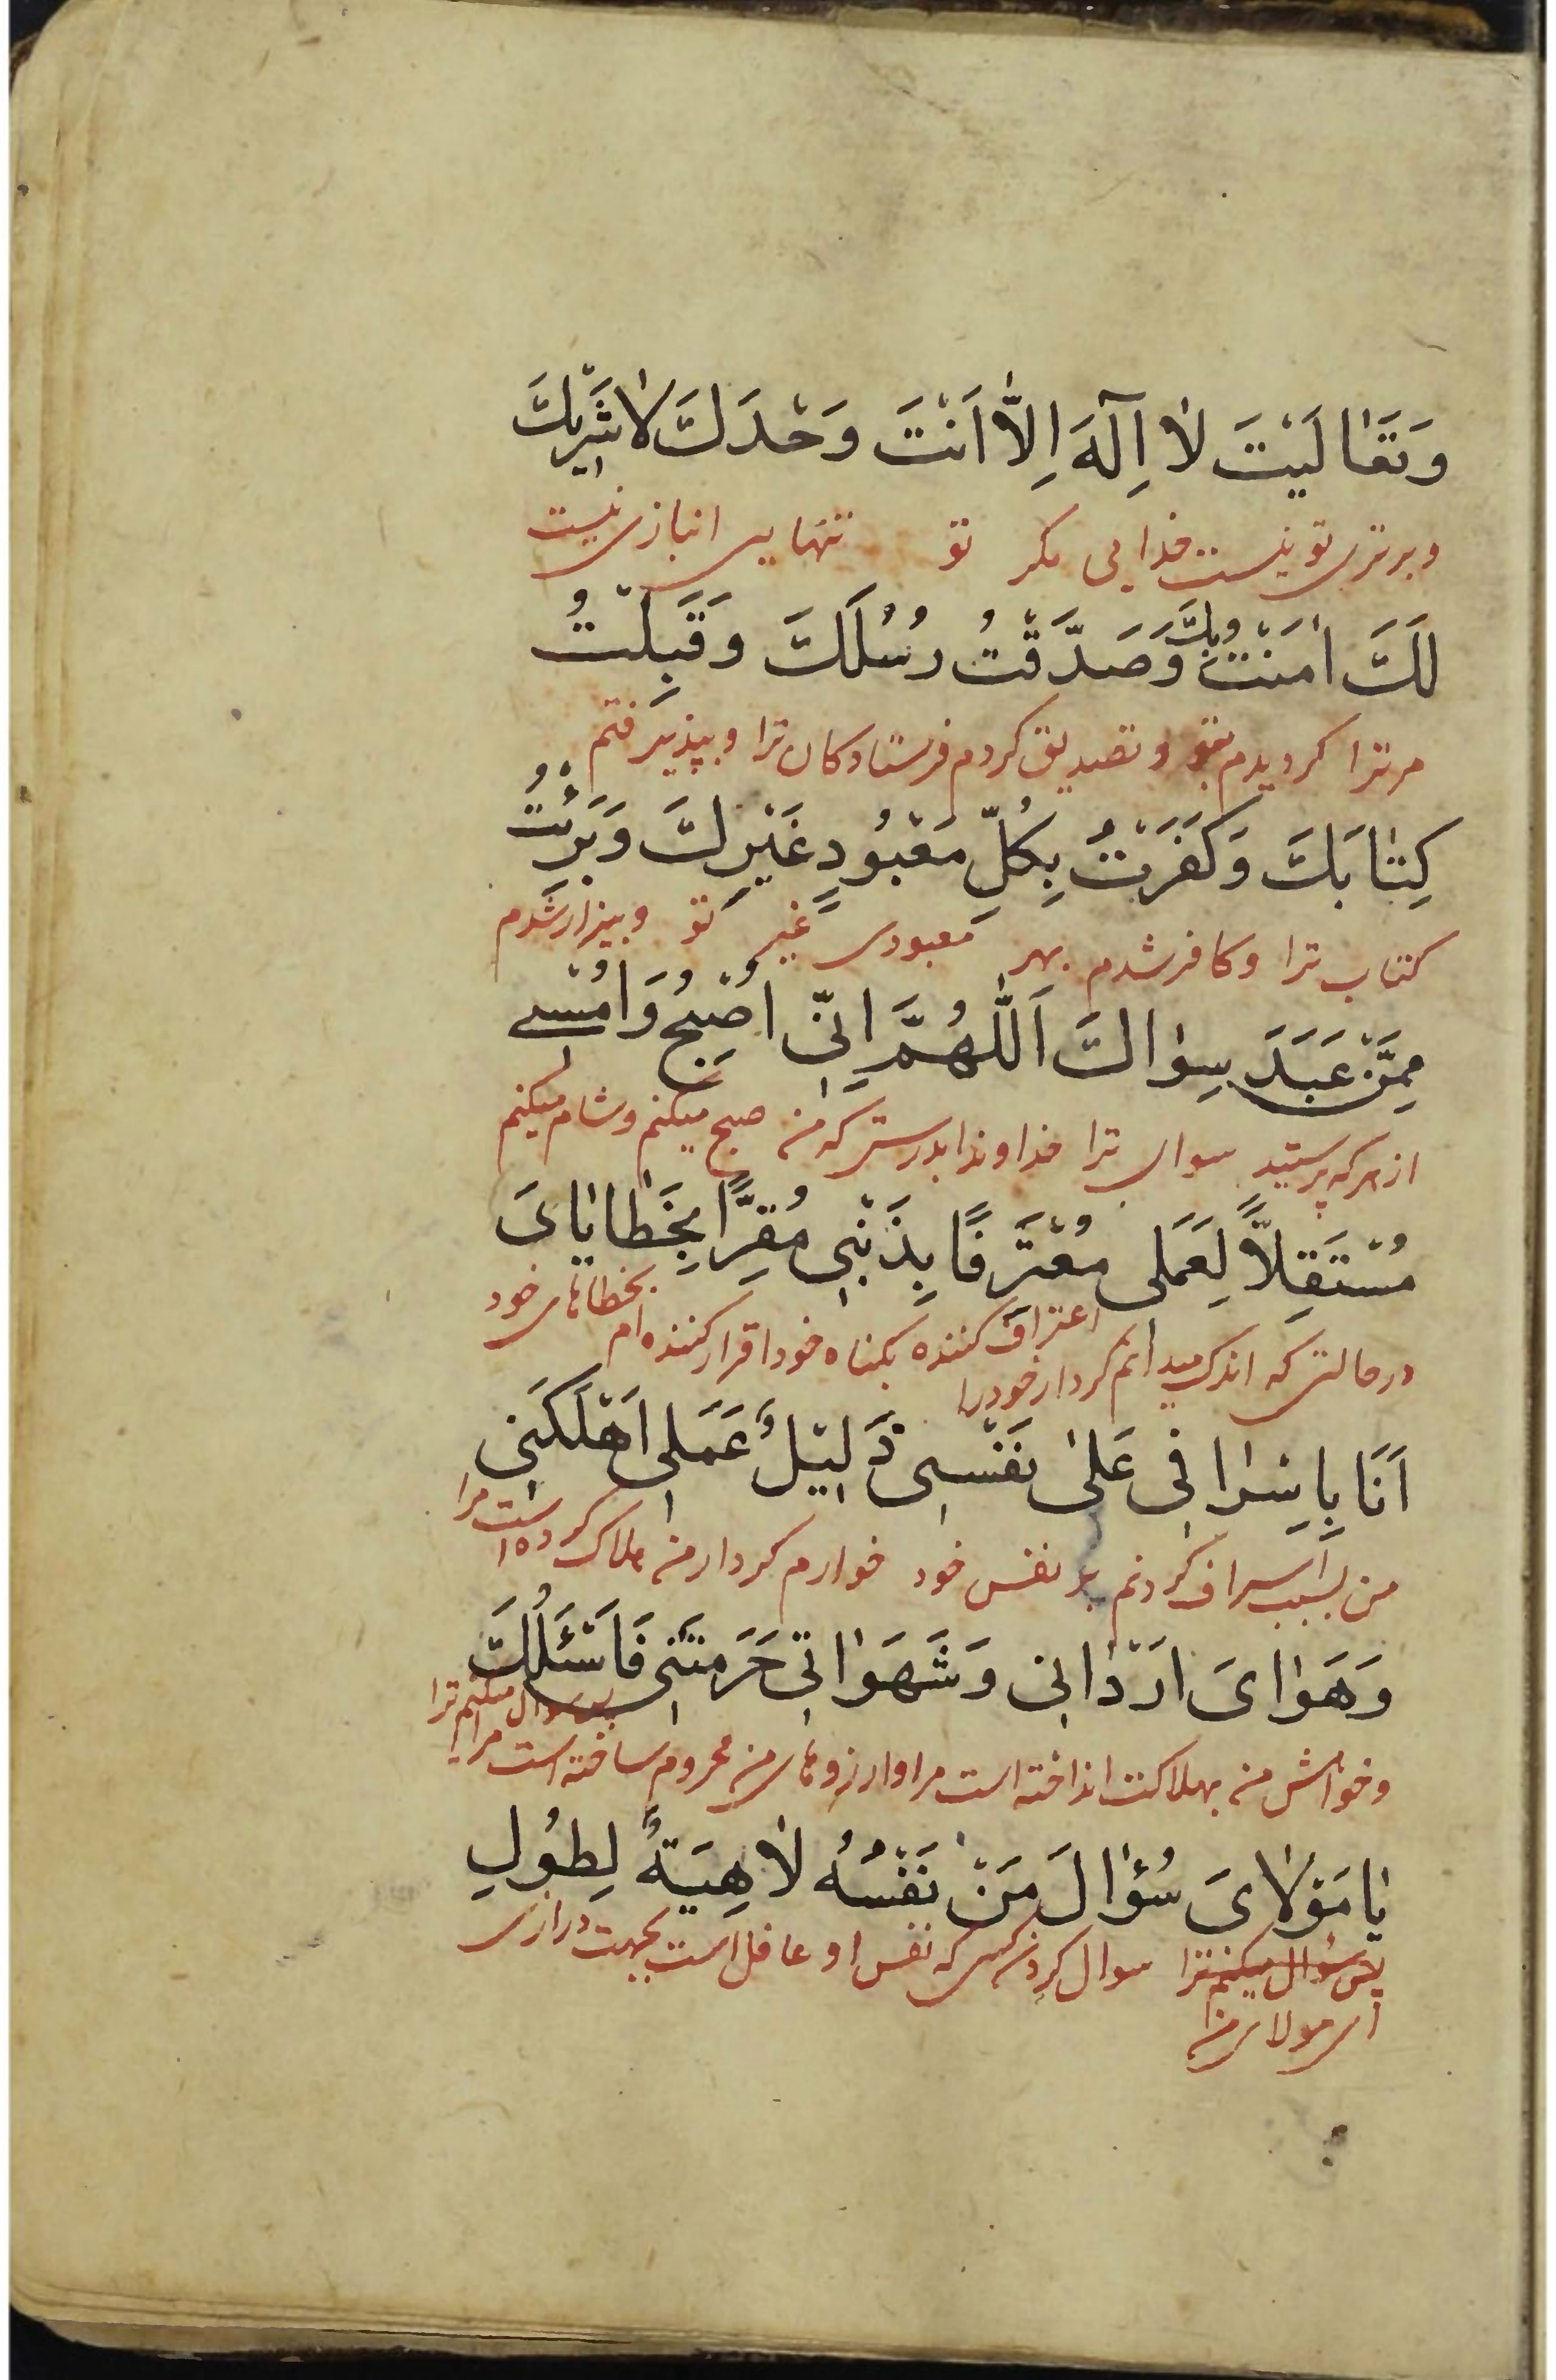 وَتَعٰالَيْتَ لٰا اِلٰهَ اِلّٰا اَنْتَ وَحْدَكَ لٰا شَرْيكَ
وبرتری تو نیست خدایی مکر تو تنهایی انبازی نیست
لَكَ اٰمَنْتُ بِكَ وَصَدَّقْتُ رُسُلَكَ وَقَبِلْتُ
مر ترا کردیدم بتو و تصدیق کردم فرستادکان ترا و بپذیرفتم
كِتٰابَكَ وَكَفَرْتُ بِكُلِّ مَعْبُودٍ غَيْرِكَ وَبَرِئْتُ
کتاب ترا و کافر شدم بهر معبودی غیر تو و بیزار شدم
مِمَّنْ عَبَدَ سِوٰاكَ اَللّٰهُمَّ اِنّٖي اُصْبِحُ وَاُمْسٖي
از هر که پرستید سوای ترا خداوندا بدرستی که من صبح میکنم و شام میکنم
مُسْتَقِلّاً لِعَمَلٖي مُعْتَرِفًا بِذَنْبٖي مُقِرًّا بِخَطٰايٰايَ
در حالتی که اندک میدانم کردار خود را اعتراف کننده بکناه خود اقرار کننده ام بخطاهای خود
اَنَا بِاِسْرٰافٖي عَلٰى نَفْسٖي ذَلٖيلٌ عَمَلٖي اَهْلَكَنٖي
من بسبب اسراف کردنم بر نفس خود خوارم کردار من هلاک کرده است مرا
وَهَوٰايَ اَرْدٰانٖي وَشَهَوٰاتٖي حَرَمَتْنٖي فَاَسْئَلُكَ
و خواهش من بهلاکت انداخته است مرا و ارزوهای من محروم ساخته است مرا پس سوال میکنم ترا
يٰا مَوْلٰايَ سُؤٰالَ مَنْ نَفْسُهُ لٰاهِيَةٌ لِطُولِ
پس سوال میکنم ترا سوال کردن کسی که نفس او غافل است بجهت درازی
ای مولای من